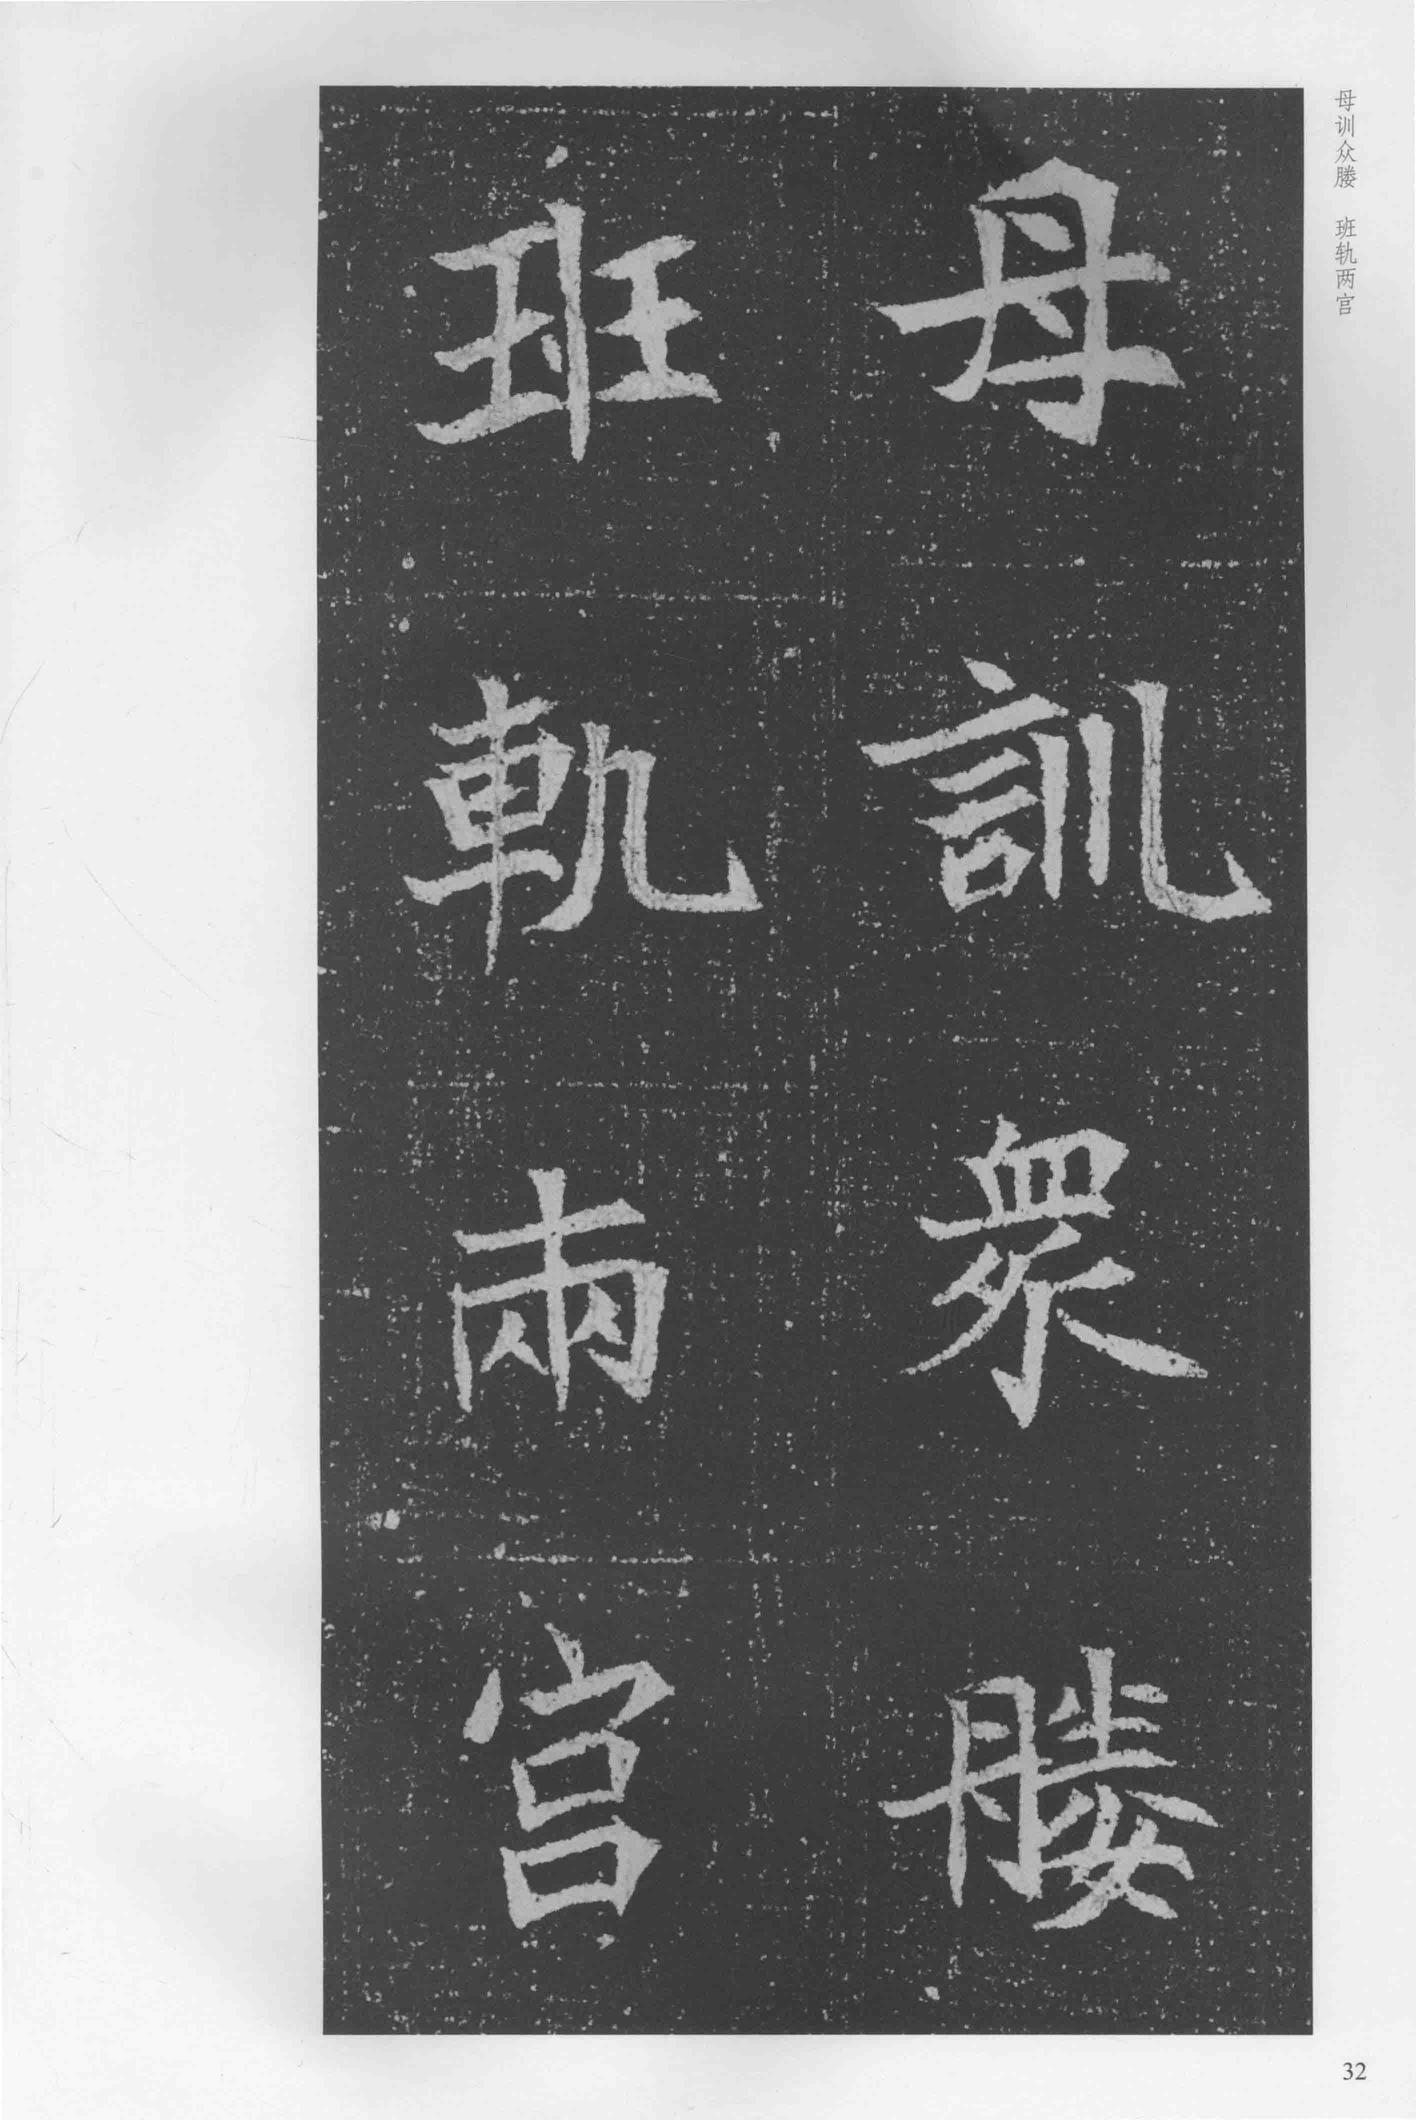 母训众媵 班轨两宫
母訓衆媵
班軌兩宫
32